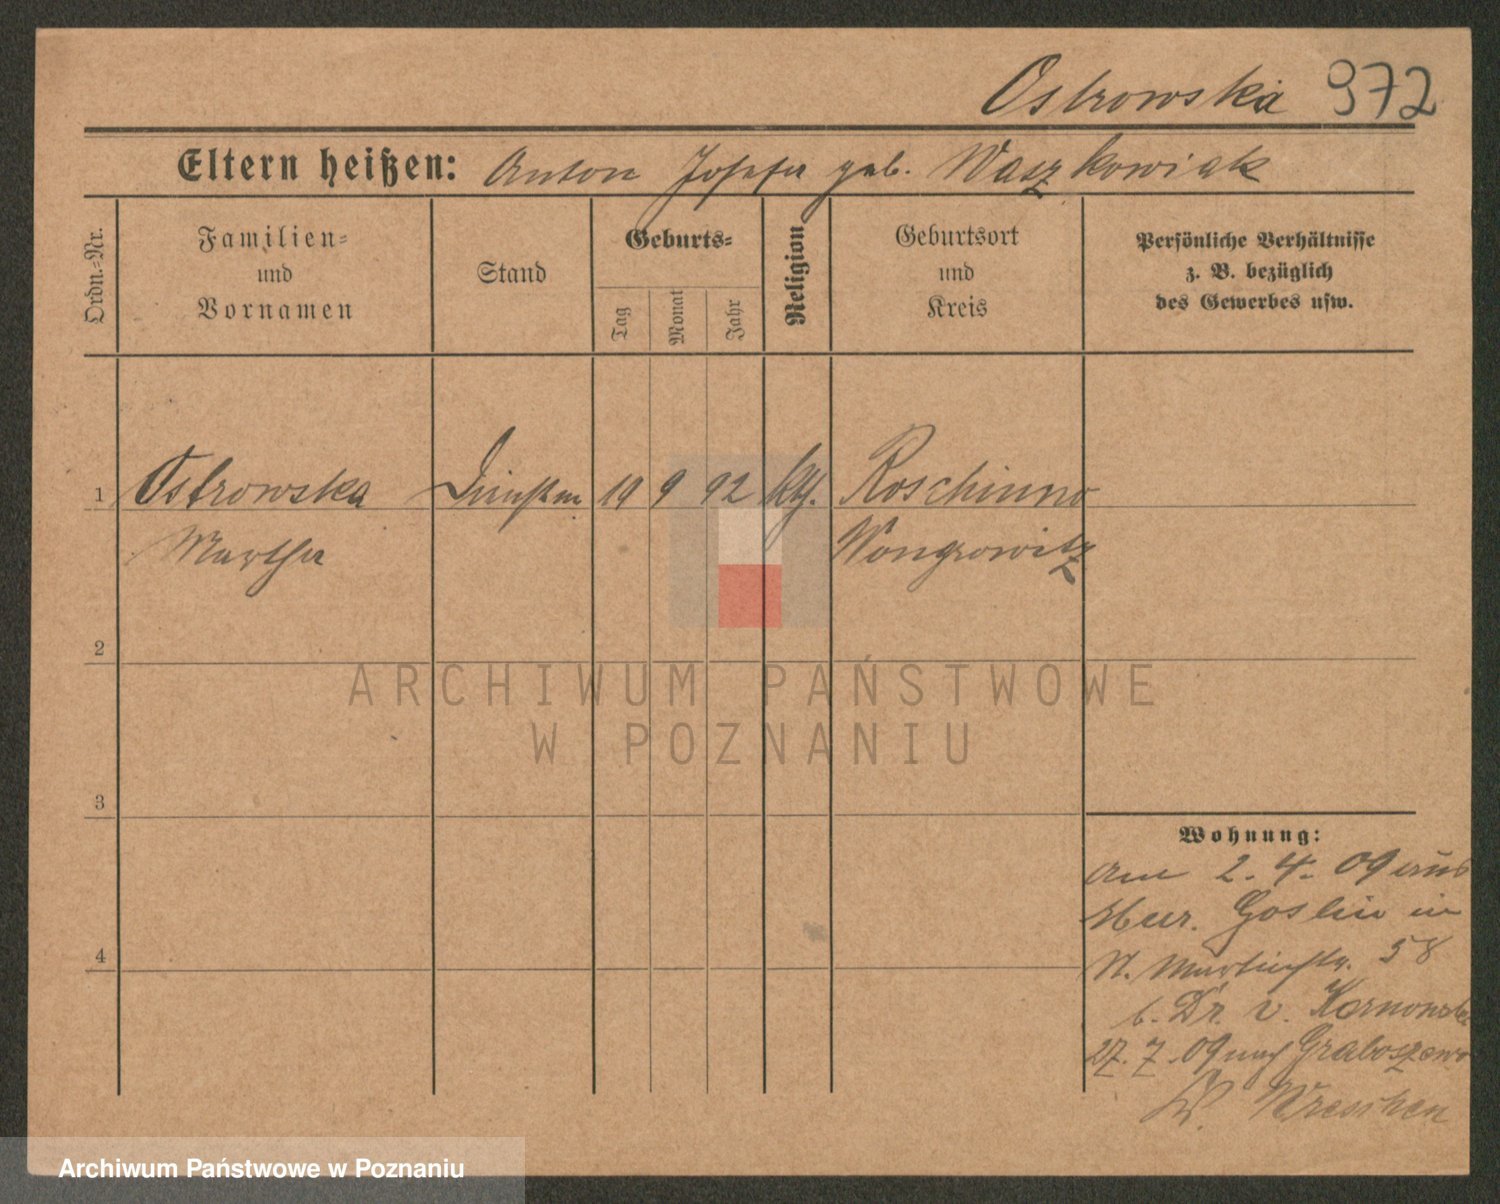 Ostrowska 972
Eltern heißen: Anton Josefa geb. Waszkowiak
Ordn.-Nr.
Familien-
und
Vornamen
Stand
Geburts-
Tag
Monat
Jahr
Religion
Geburtsort
und
Kreis
Persönliche Verhältnisse
z. B. bezüglich
des Gewerbes usw.
1 Ostrowska 19 9 92 kth. Roschinno
Martha Wongrowitz
2
3
4
Wohnung:
am 2. 4. 09 aus
Mur. Goslin in
St. Martinstr. 58
b. Dr. v.
27. 7. 09 nach Graboszewo
Kr. Wreschen
ARCHIWUM PAŃSTWOWE
W POZNANIU
Archiwum Państwowe w Poznaniu